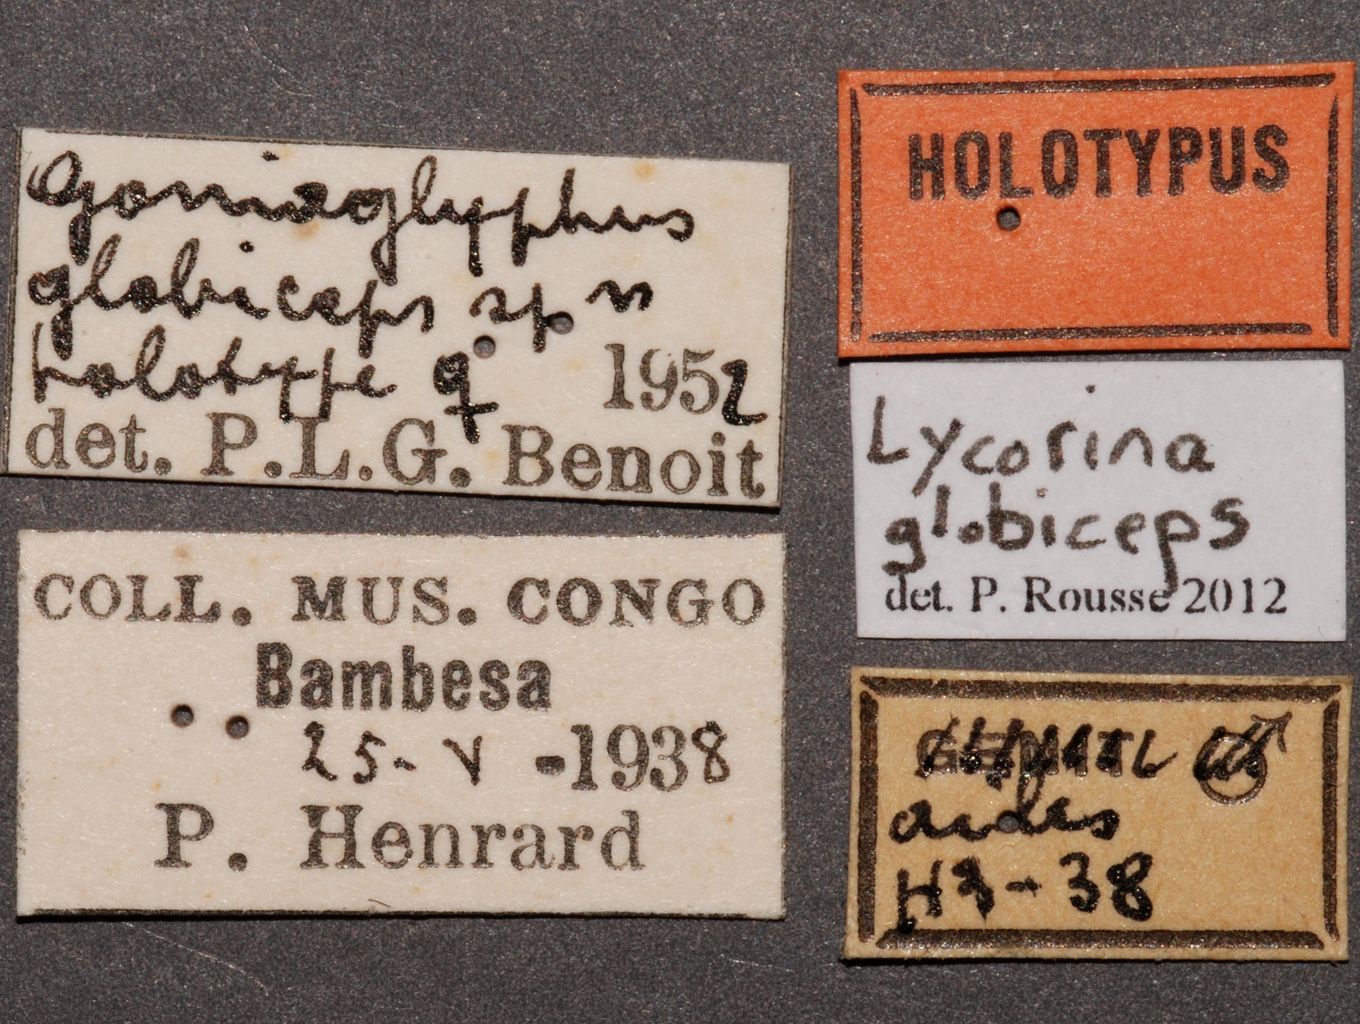 Gonioglyphus
globiceps sp n
holotype ♀ 1952
det. P.L.G. Benoit
COLL. MUS. CONGO
Bambesa
25-V-1938
P. Henrard
HOLOTYPUS
Lycorina
globiceps
det. P. Rousse 2012
♂
H3-38